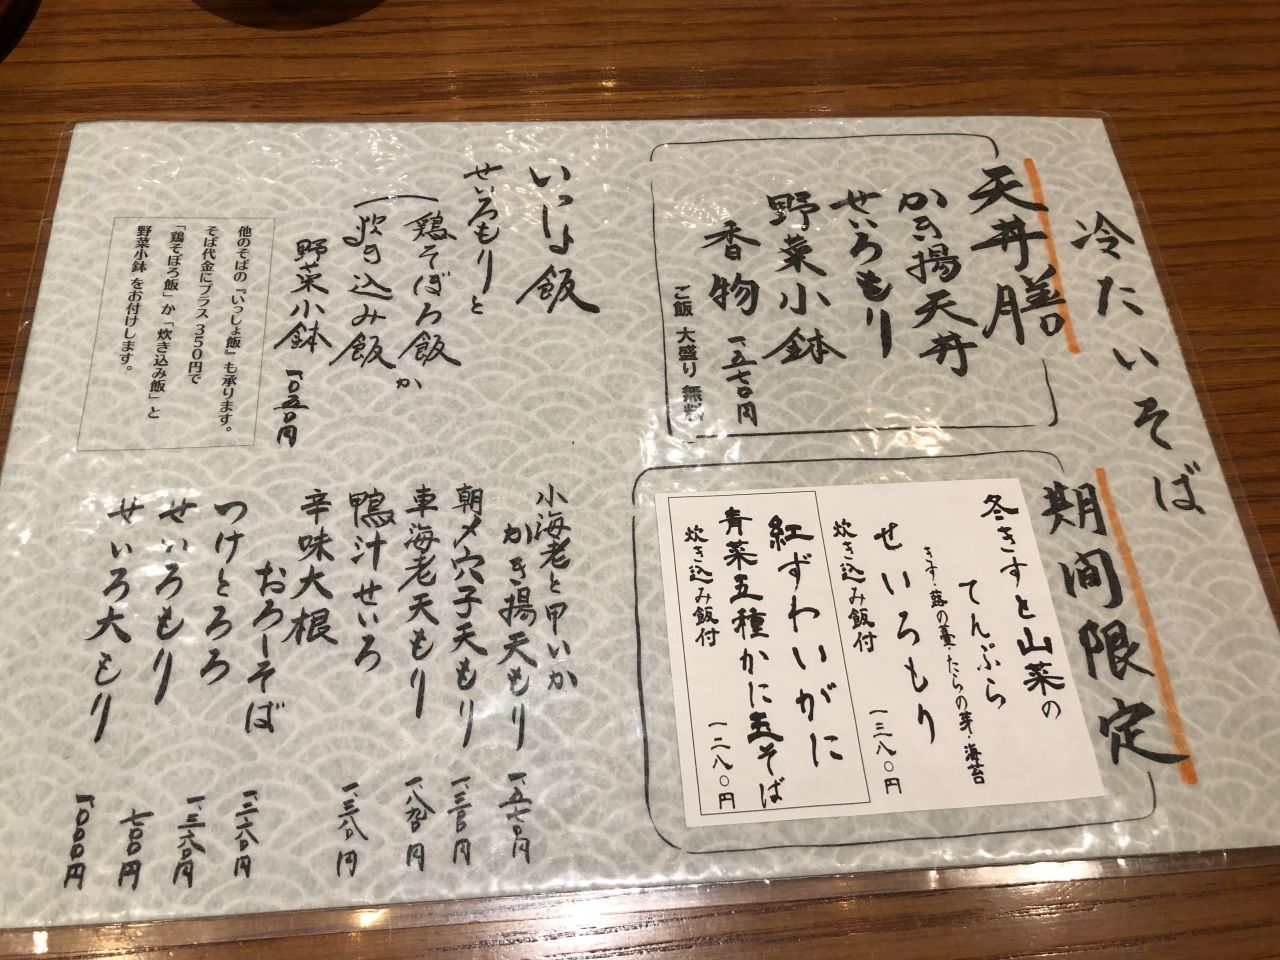 冷たいそば
天丼膳
かき揚天丼
せいろもり
野菜小鉢
香物
一、五七〇円
ご飯 大盛り 無料
期間限定
冬きすと山菜の
てんぷら
きす・蕗の薹・たらの芽・海苔
せいろもり
炊き込み飯付
一三八〇円
紅ずわいがに
青菜五種かに玉そば
炊き込み飯付
一二八〇円
いっしょ飯
せいろもりと
鶏そぼろ飯か
炊き込み飯
野菜小鉢
一〇五〇円
他のそばの『いっしょ飯』も承ります。
そば代金にプラス 350円で
「鶏そぼろ飯」か「炊き込み飯」と
野菜小鉢 をお付けします。
小海老と甲いか
かき揚天もり
一、五七〇円
朝〆穴子天もり
車海老天もり
鴨汁せいろ
辛味大根
おろしそば
つけとろろ
せいろもり
七〇〇円
せいろ大もり
一、〇〇〇円